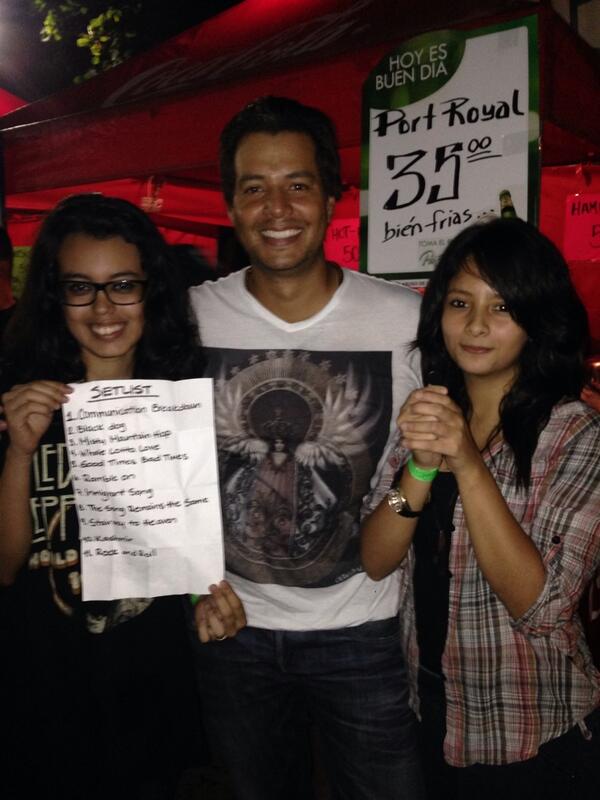 Coca-Cola
HOY ES
BUEN DÍA
Port Royal
35.00
bién frias...
TOMA EL
HOT-
50
HAM
SETLIST
1. Communication Breakdown
2. Black dog
3. Misty Mountain Hop
4. Whole Lotta Love
5. Good Times Bad Times
6. Ramble on
7. Inmigrant Song
8. The Song Remains the Same
9. Stairway to Heaven
10. Kashmir
11. Rock and Roll
LED
EPP
WORLD